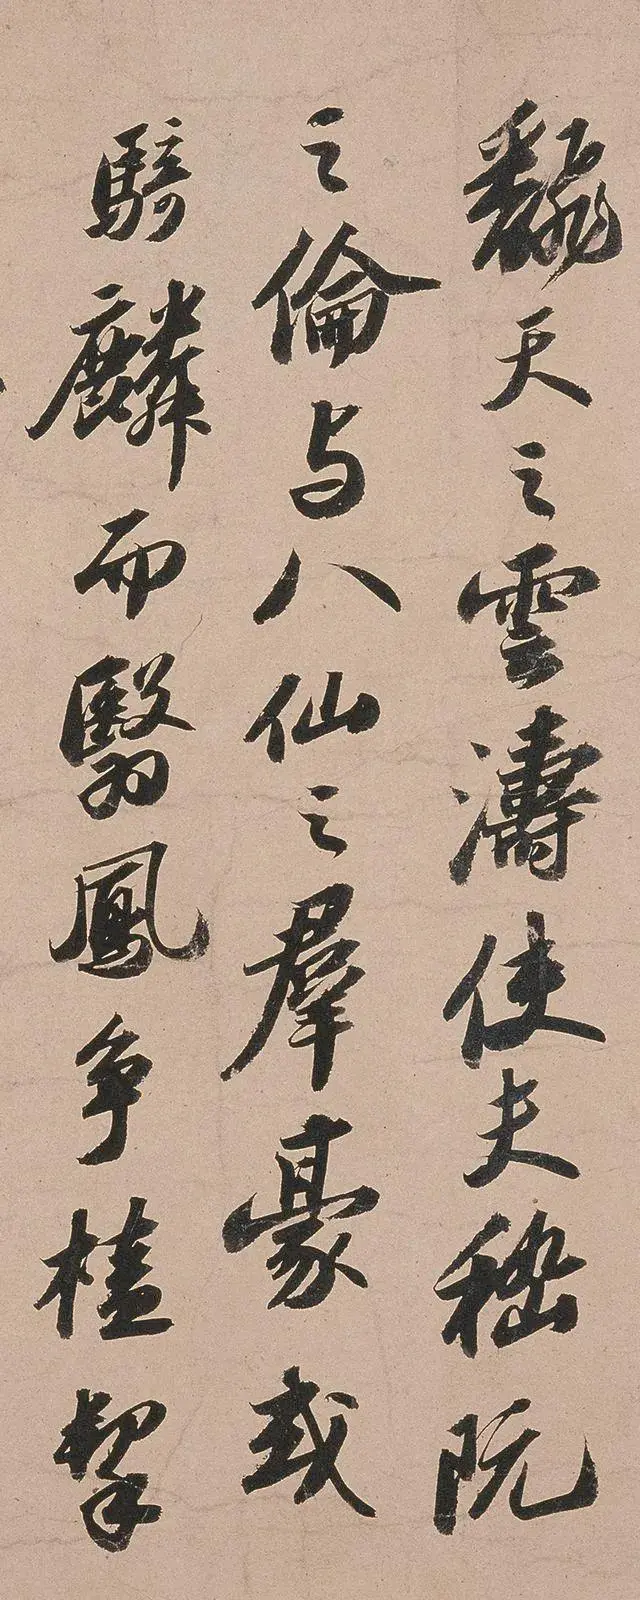 飜天之雲濤使夫嵇阮
之倫与八仙之羣豪或
騎麟而翳鳳争榼挈